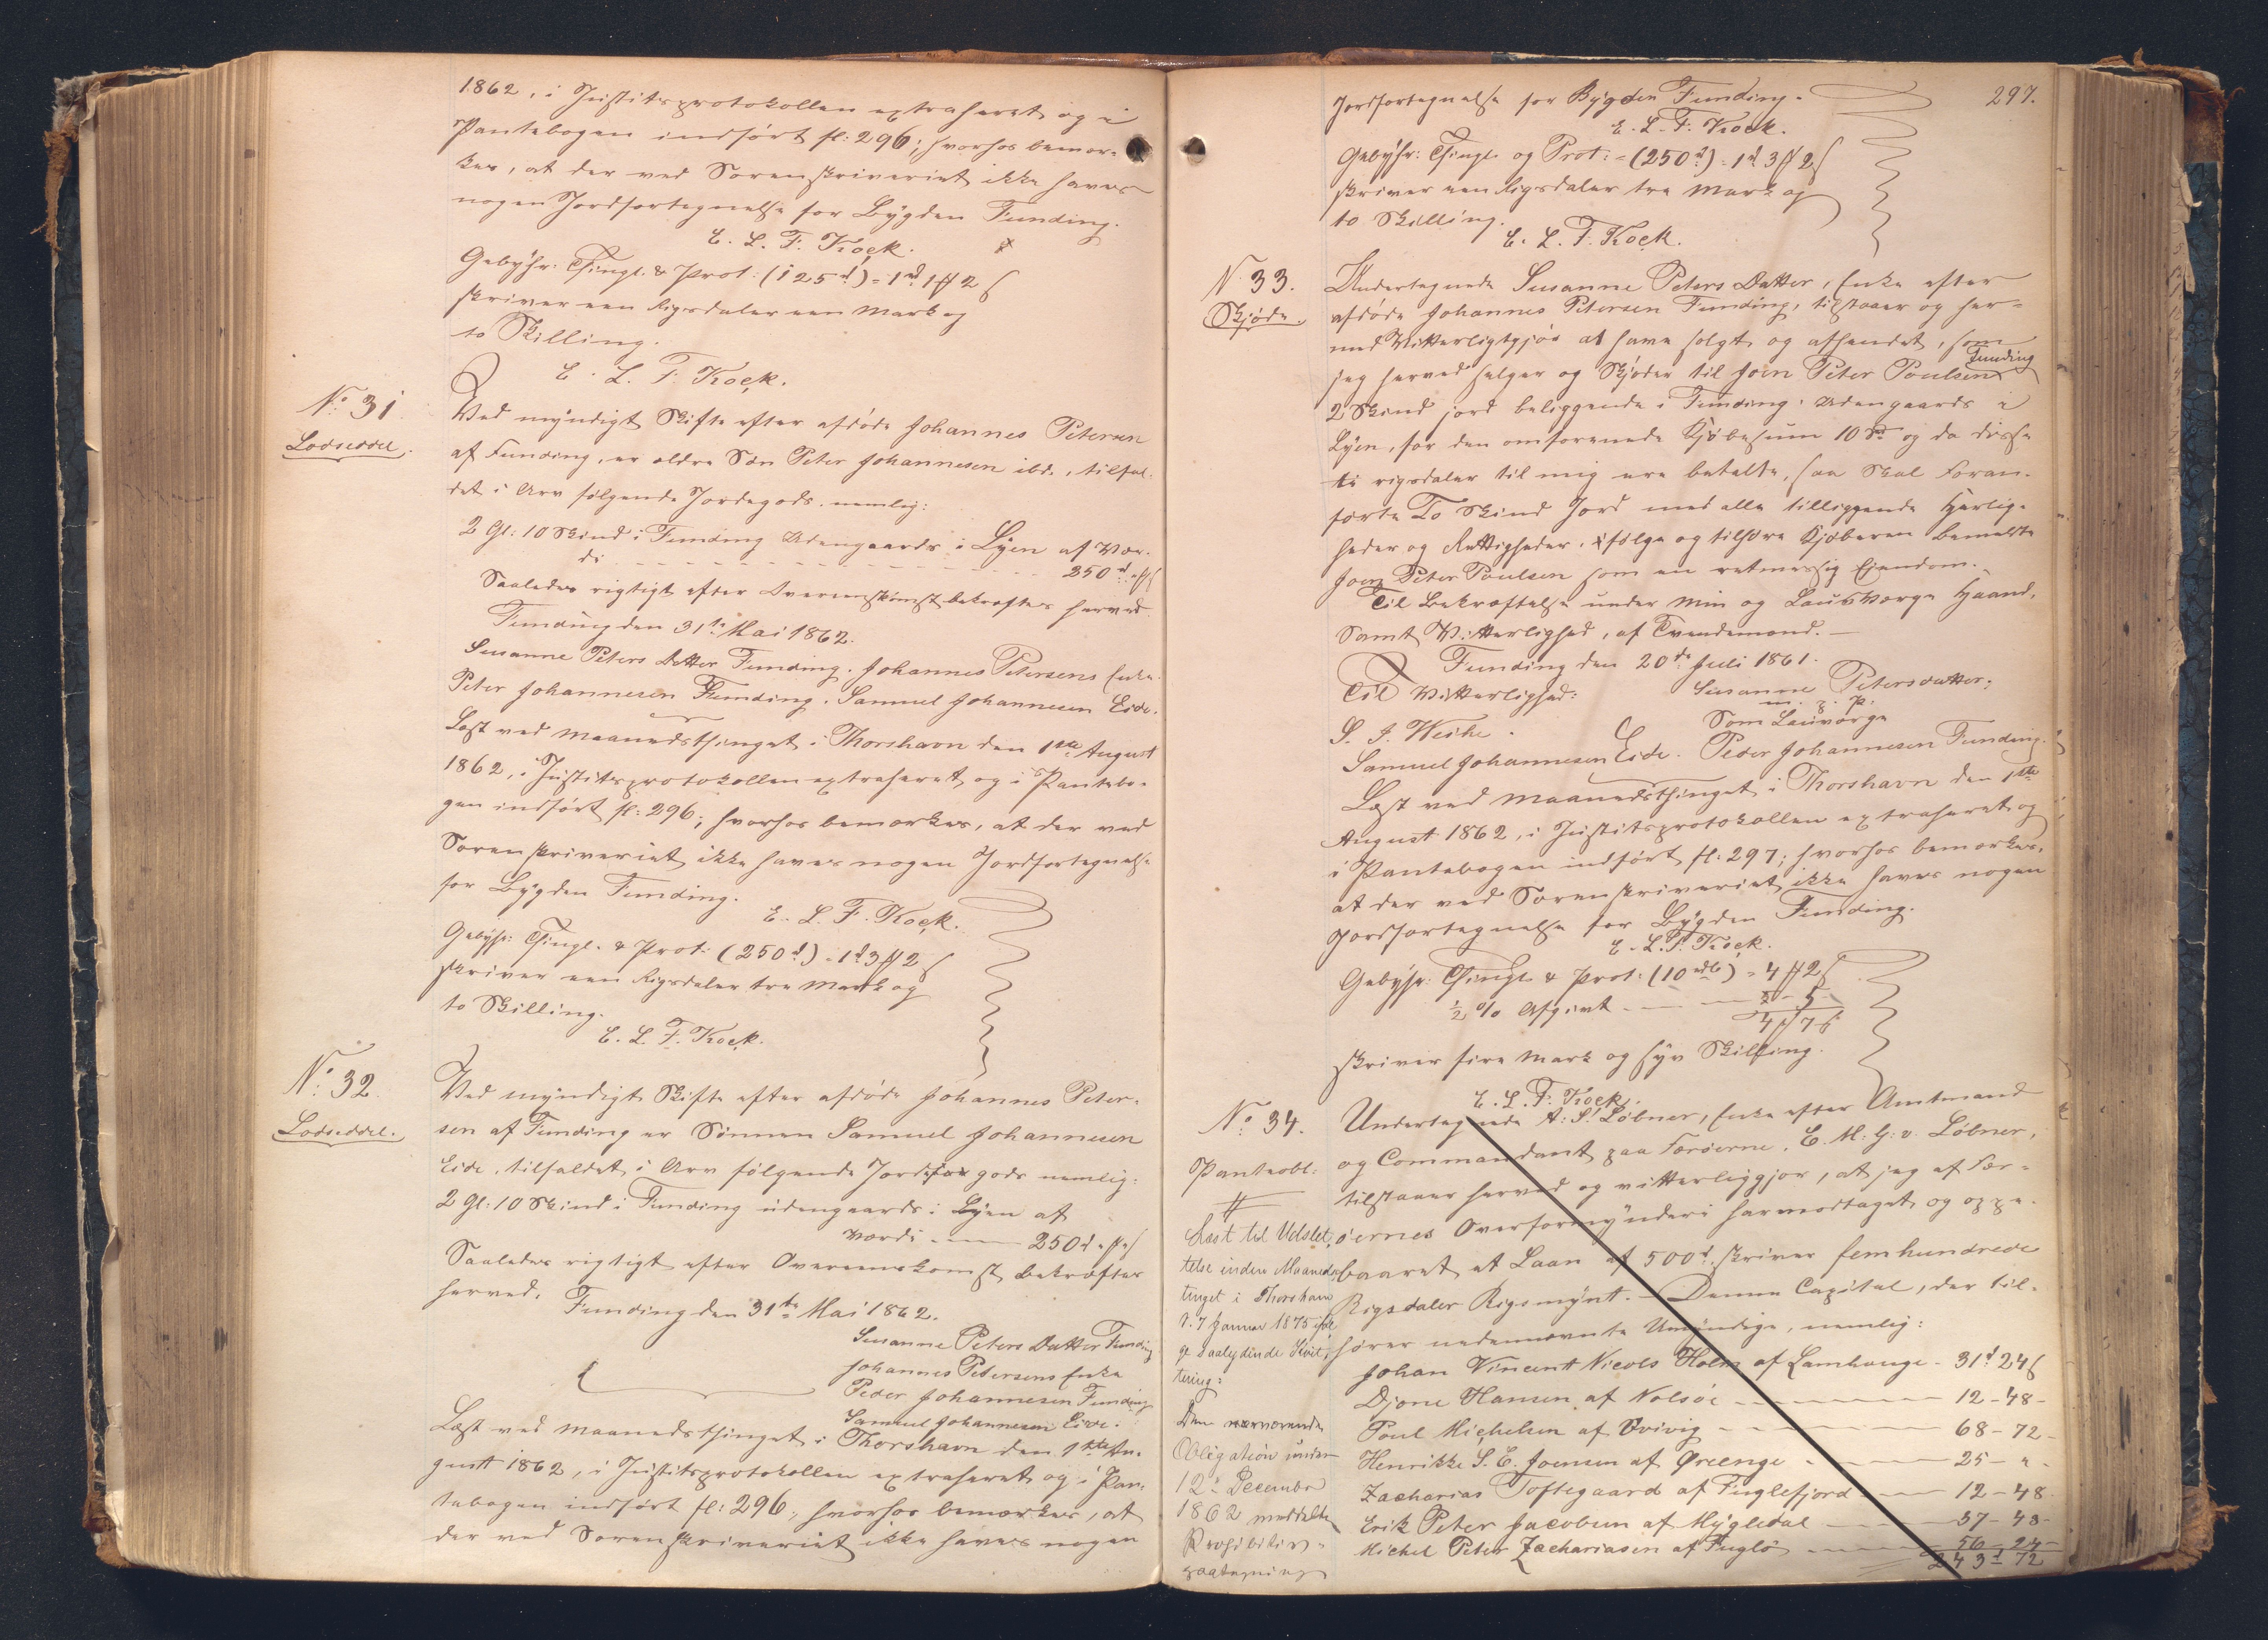 1862, i Justitsprotokollen extraheret og i
Pantebogen indført fl: 296; hvorhos bemær-
kes, at der ved Sorenskriveriet ikke haves
nogen Jordfortegnelse for Bygden Funding.
E. L. F. Kock.
Gebyhr: Thingl. & Prot: (125 d) = 1 d 1 # 2 ß
skriver een Rigsdaler een Mark og
to Skilling.
E. L. F. Kock.
No: 31
Lodseddel.
Ved myndigt Skifte efter afdøde Johannes Petersen
af Funding, er ældre Søn Peter Johannesen ibd., tilfal-
det i Arv følgende Jordegods, nemlig:
2 Gl: 10 Skind i Funding Udengaards i Lyen af Vær-
di - - - - - - 250 d " # " ß
Saaledes rigtigt efter Overeenskomst bekræftes herved
Funding den 31te Mai 1862.
Susanne Peters Datter Funding. Johannes Petersens Enke.
Peter Johannesen Funding. Samuel Johannesen Eide.
Læst ved Maanedsthinget i Thorshavn den 1ste August
1862, i Justitsprotokollen extraheret og i Pantebo-
gen indført fl: 296; hvorhos bemærkes, at der ved
Sorenskriveriet ikke haves nogen Jordfortegnelse
for Bygden Funding.
E. L. F. Kock.
Gebyhr: Thingl. & Prot: (250 d) = 1 d 3 # 2 ß
skriver een Rigsdaler tre Mark og
to Skilling.
E. L. F. Kock.
No: 32.
Lodseddel.
Ved myndigt Skifte efter afdøde Johannes Peter-
sen af Funding er Sønnen Samuel Johannesen
Eide, tilfaldet i Arv følgende Jordegods nemlig:
2 Gl: 10 Skind i Funding udengaards i Lyen af
Værdi - - - 250 d " # " ß
Saaledes rigtigt efter Overeenskomst bekræftes
herved.
Funding den 31te Mai 1862.
Susanne Peters Datter Funding
Johannes Petersens Enke
Peder Johannesen Funding
Samuel Johannesen Eide.
Læst ved Maanedsthinget i Thorshavn den 1ste Au-
gust 1862, i Justitsprotokollen extraheret og i Pan-
tebogen indført fl: 296; hvorhos bemærkes, at
der ved Sorenskriveriet ikke haves nogen
297.
Jordfortegnelse for Bygden Funding.
E. L. F. Kock.
Gebyhr: Thingl. og Prot: = (250 d) = 1 d 3 # 2 ß
skriver een Rigsdaler tre Mark og
to Skilling.
E. L. F. Kock.
No 33.
Skjøde.
Undertegnede Susanne Peters Datter, Enke efter
afdøde Johannes Petersen Funding, tilstaaer og her-
med Vitterligtgjør at have solgt og afhændet, som
Funding
jeg herved sælger og Skjøder til Joen Peter Poulsen
2 Skind jord beliggende i Funding Udengaards i
Lyen, for den omforenede Kjøbesum 10 Rd og da disse
ti rigsdaler til mig ere betalte, saa Skal Foran-
førte To Skind Jord med alle tilliggende Herlig-
heder og Rettigheder, følge og tilhøre Kjøberen bemeldte
Joen Peter Poulsen som en retmæssig Ejendom.
Til Bekræftelse under Min og Laugværge Haand,
Samt Vitterlighed, af Tvendemænd.
Funding den 20de Juli 1861.
Til Vitterlighed: Susanne Petersdatter.
m. f. P.
S. J. Weihe. Som Lauværge
Samuel Johannesen Eide. Peder Johannesen Funding.
Læst ved Maanedsthinget i Thorshavn den 1ste
August 1862, i Justitsprotokollen extraheret og
i Pantebogen indført fl: 297; hvorhos bemærkes,
at der ved Sorenskriveriet ikke haves nogen
Jordfortegnelse for Bygden Funding.
E. L. F. Kock.
Gebyhr: Thingl. & Prot: (10 rdlr) = 4 # 2 ß
1/2 % Afgivt - - - 5
4 # 7 ß
skriver fire Mark og syv Skilling.
E. L. F. Kock.
No: 34.
Panteobl:
Undertegnede A. S. Løbner, Enke efter Amtmand
og Commandant paa Færøerne, C. M. G. v. Løbner,
tilstaaer herved og vitterliggjør, at jeg af Fær-
øernes Overformynderi har modtaget og oppe-
baaret et Laan af 500 d skriver femhundrede
Rigsdaler Rigsmynt. - Denne Capital, der til-
hører nedennævnte Umyndige, nemlig:
Johan Vincent Nicols Holm af Lamhauge - 31 d 24 ß
Djone Hansen af Nolsøe - - - 12 - 48 -
Poul Michelsen af Qvivig - - - 68 - 72 -
Henrikke S. E. Joensen af Øreenge - - - 25 - " -
Zacharias Toftegaard af Fuglefjord - - - 12 - 48
Erik Peter Jacobsen af Mygledal - - - 37 - 48 -
Michel Peter Zachariasen af Fuglø - - - 56 - 24 -
243 d 72
Læst til Udslet-
telse inden Maaneds-
tinget i Thorshavn
d. 7 Januar 1875 iføl-
ge saalydende Kvit-
tering:
Den nærværende
Obligation under
12te December
1862 meddelte
Prohibitiv-
paategning